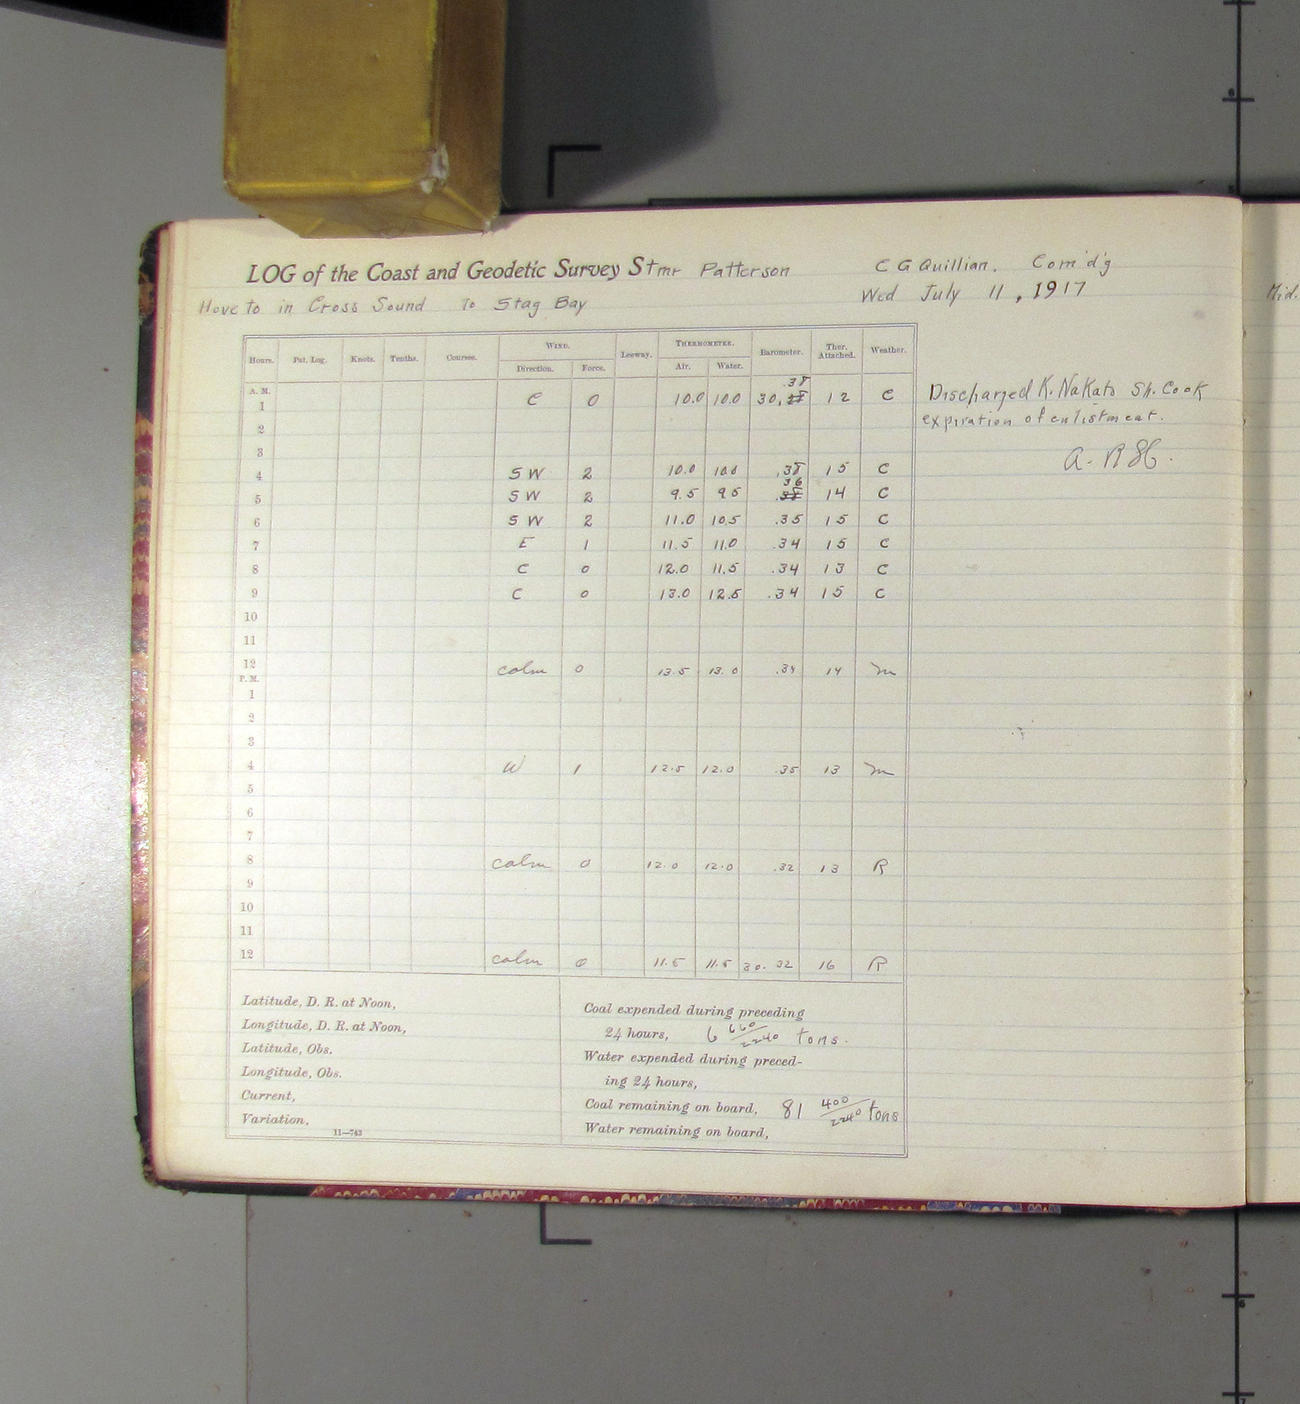 LOG of the Coast and Geodetic Survey Stmr Patterson C G Quillian. Com'd'g
Hove to in Cross Sound To Stag Bay Wed July 11, 1917
Hours. Pat. Log. Knots. Tenths. Courses. WIND. Leeway. THERMOMETER. Barometer. Ther. Attached. Weather.
Direction. Force. Air. Water.
A. M.
1 C 0 10.0 10.0 30. .38 12 C
2
3
4 SW 2 10.0 10.0 .38 15 C
5 SW 2 9.5 9.5 .36 14 C
6 SW 2 11.0 10.5 .35 15 C
7 E 1 11.5 11.0 .34 15 C
8 C 0 12.0 11.5 .34 13 C
9 C 0 13.0 12.5 .34 15 C
10
11
12 calm 0 13.5 13.0 .34 14 m
P. M.
1
2
3
4 W 1 12.5 12.0 .35 13 m
5
6
7
8 calm 0 12.0 12.0 .32 13 R
9
10
11
12 calm 0 11.5 11.5 30.32 16 R
Discharged K. Nakato Sh. Cook
expiration of enlistment.
Latitude, D. R. at Noon,
Longitude, D. R. at Noon,
Latitude, Obs.
Longitude, Obs.
Current,
Variation,
11—743
Coal expended during preceding
24 hours, 6 660/2240 tons.
Water expended during preced-
ing 24 hours,
Coal remaining on board, 81 400/2240 tons
Water remaining on board,
Mid.